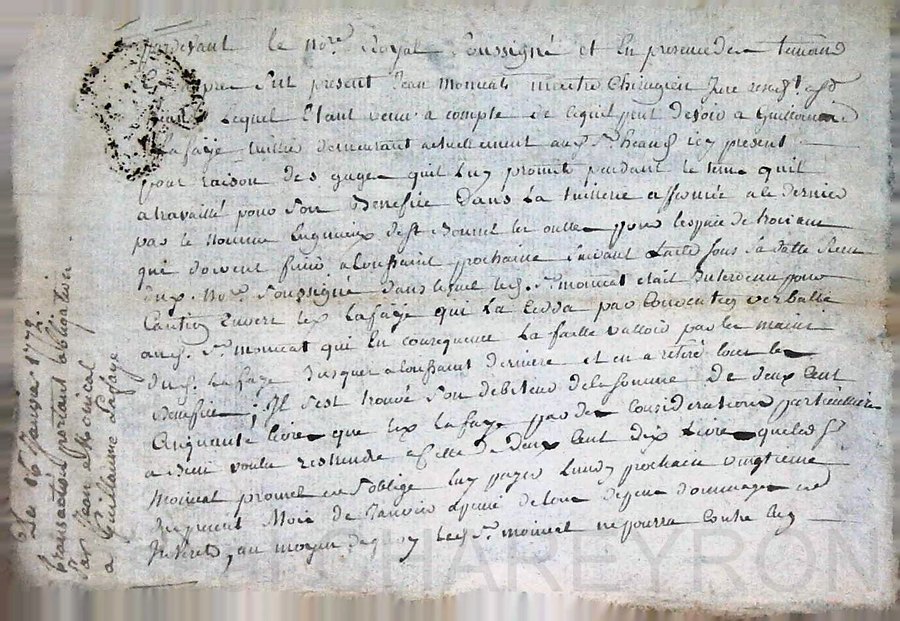 Pardevant le no.re Royal soussigné et en presence des temoins
sut present Jean moncat maitre Chirugien Jure
Lequel Etant venu a compte de ce quil peut devoir a Guillaume
Lafaye tuillier demeurant actuellement au icy present
pour raison des gages quil Luy promit pendant le tems quil
a travaillé pour son Benefice dans La tuillerie affermée a ce dernier
par le nommé pour lespace de trois ans
qui doivent finir a la toussaint prochaine suivant Lacte sous sa datte Recu
du no.re soussigné dans lequel led. S.r moncat etait intervenu pour
Caution envert led. Lafaye qui La Ceda par Convention verballe
aud. S.r moncat qui En consequence La faitte valloir par les mains
dud. Lafaye Jusques a la toussaint derniere et en a retiré tous les
Benefices; Il s'est trouvé son debiteur de la somme de deux cent
Cinquante livres que led. Lafaye par des considerations particulieres
a bien voulu restraindre a Celle de deux Cent dix Livres quelled. S.r
Moncat promet et s'oblige Luy payer Lundy prochain vingtieme
du present Mois de Janvier a peine de tous depens dommages et
Interets, au moyen de quoy Led. S.r moncat ne pourra Contre luy
Le 16 Janvier 1772.
transaction portant obligation
Par Jean Moncat
a Guillaume Lafaye
CHAREYRON